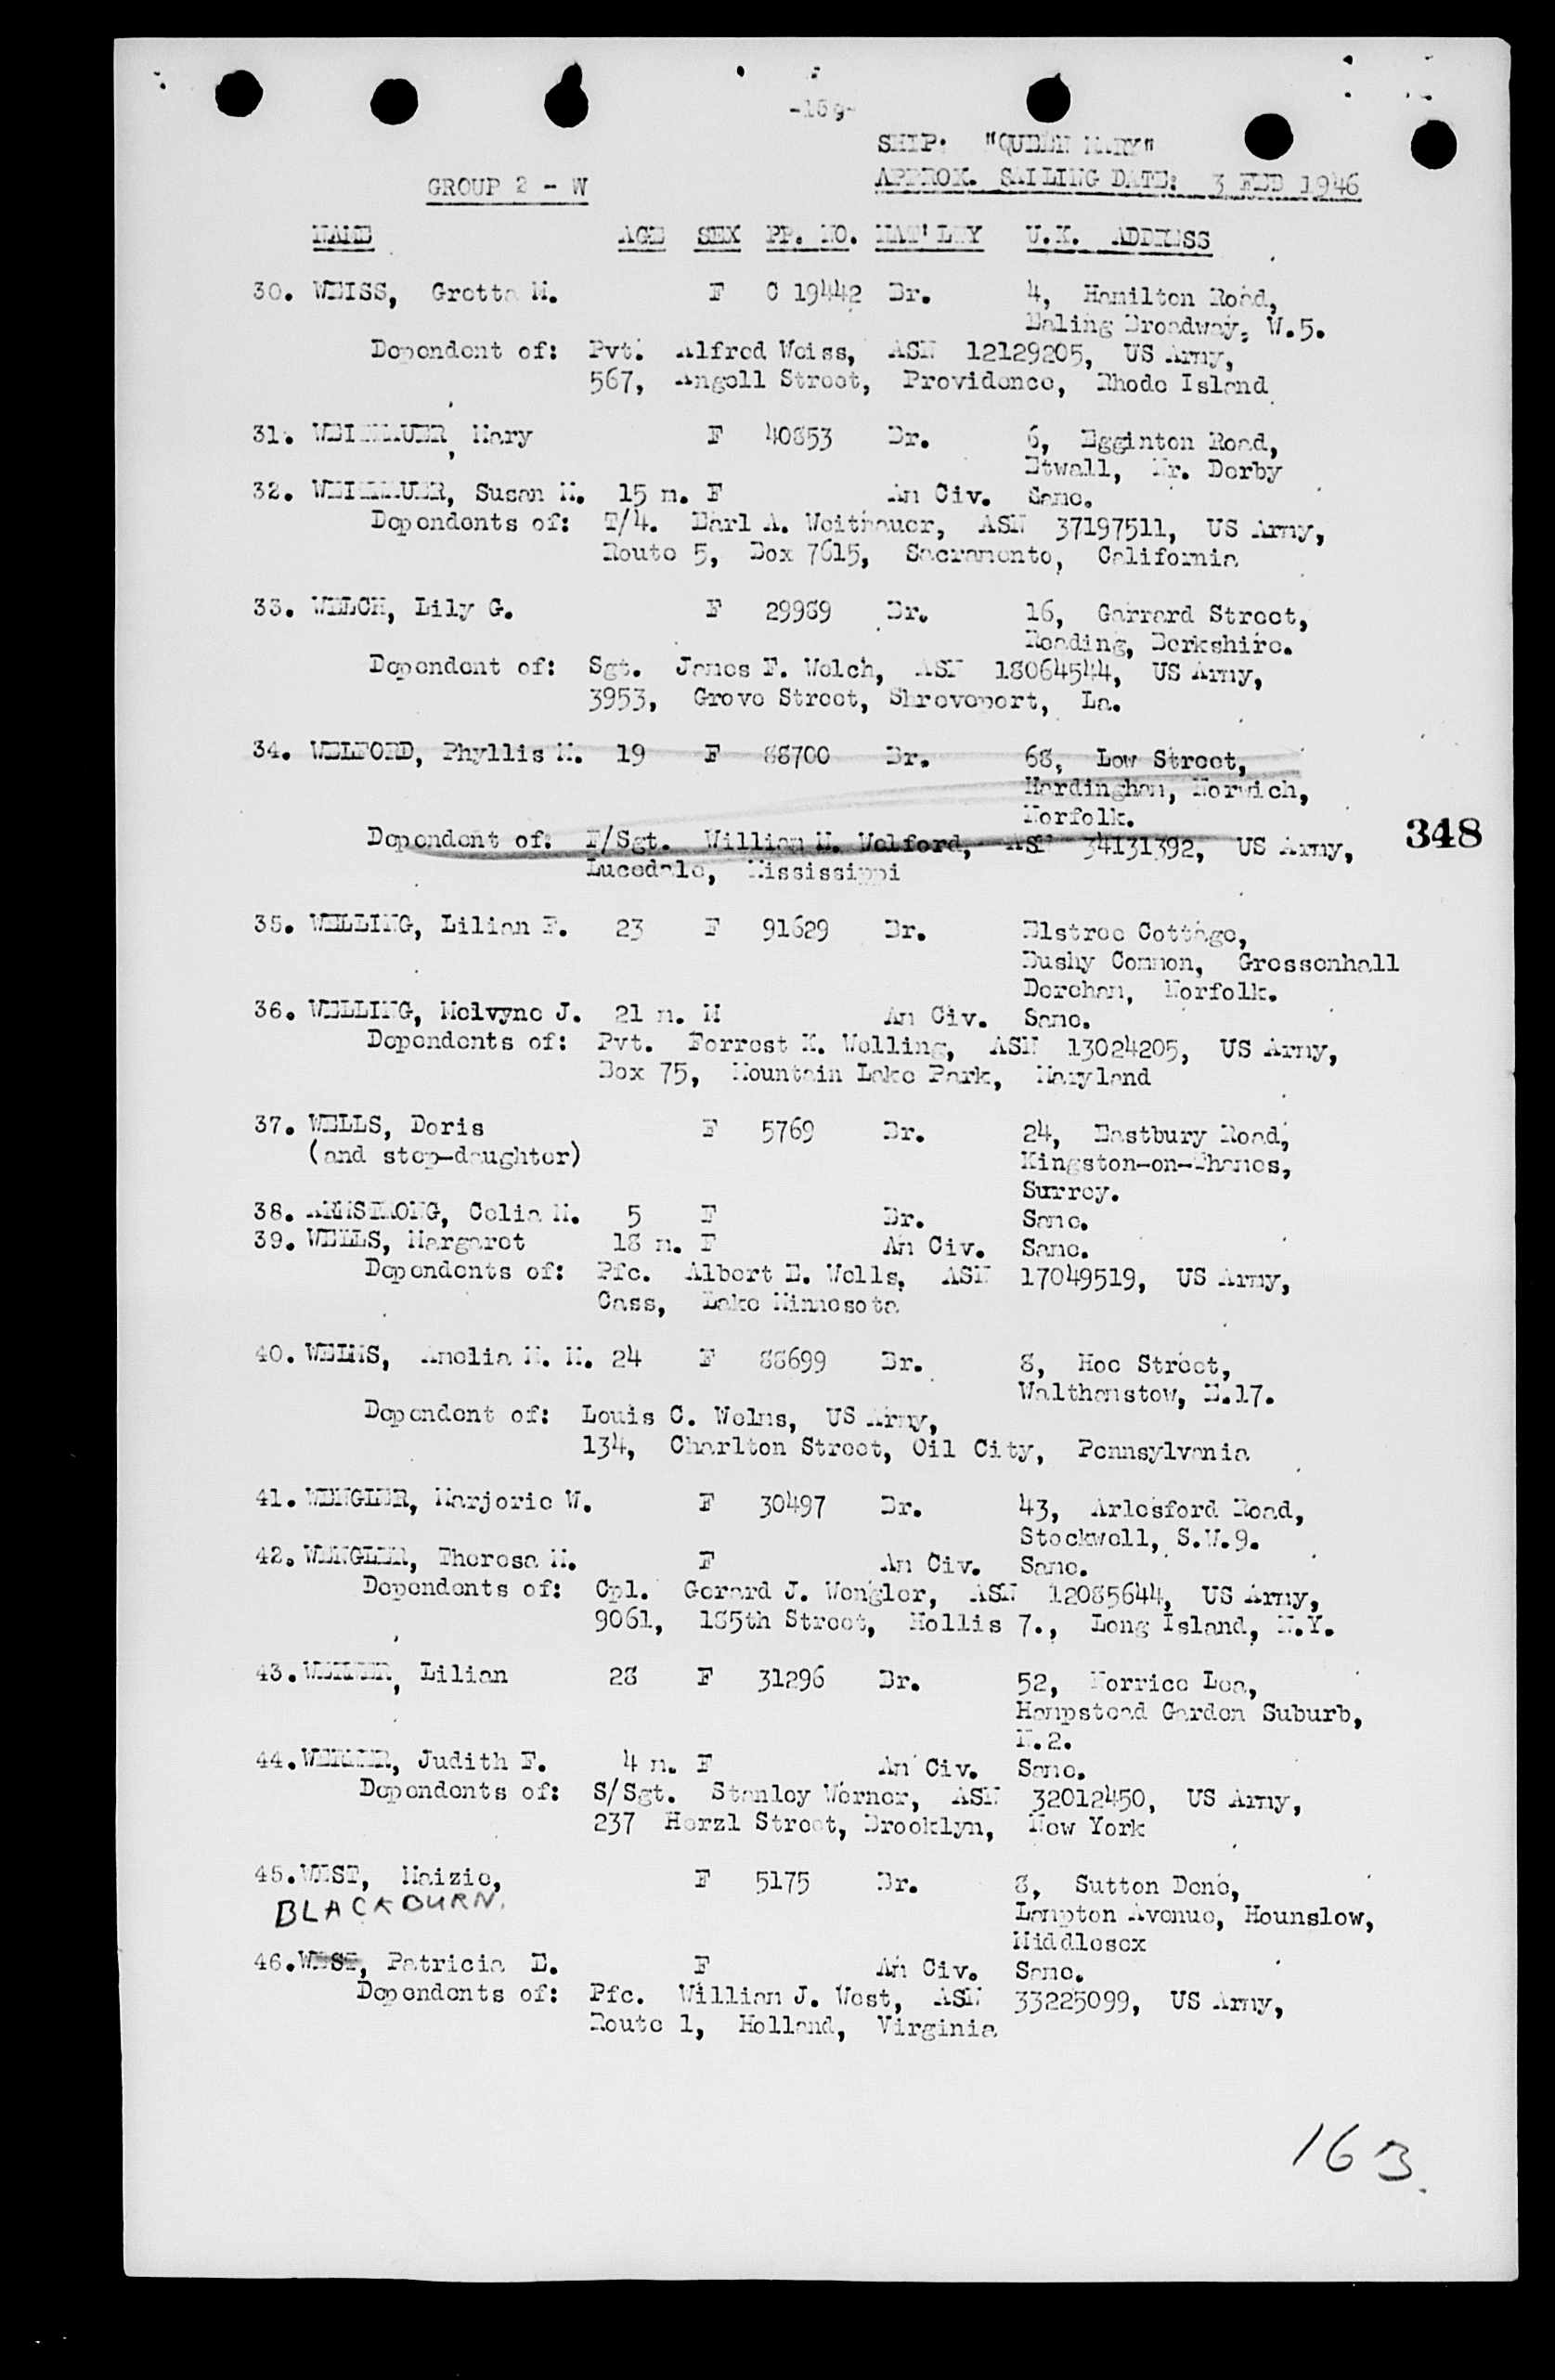 -159-
SHIP: "QUEEN MARY"
GROUP 2 - W APPROX. SAILING DATE: 3 FEB 1946
NAME AGE SEX PP. NO. NAT'LTY U.K. ADDRESS
30. WEISS, Gretta M. F C 19442 Br. 4, Hamilton Road,
Ealing Broadway, W.5.
Dependent of: Pvt. Alfred Weiss, ASN 12129205, US Army,
567, Angell Street, Providence, Rhode Island
31. Mary F 40853 Br. 6, Egginton Road,
Etwall, Nr. Derby
32. Susan M. 15 m. F Am Civ. Same.
Dependents of: T/4. Earl A. ASN 37197511, US Army,
Route 5, Box 7615, Sacramento, California
33. WELCH, Lily G. F 29989 Br. 16, Garrard Street,
Reading, Berkshire.
Dependent of: Sgt. James F. Welch, ASN 18064544, US Army,
3953, Grove Street, Shreveport, La.
34. WELFORD, Phyllis M. 19 F 88700 Br. 68, Low Street,
Hardingham, Norwich,
Norfolk.
Dependent of: F/Sgt. William M. Welford, ASN 34131392, US Army,
Lucedale, Mississippi
348
35. WELLING, Lilian F. 23 F 91629 Br. Elstree Cottage,
Bushy Common, Gressenhall
Dereham, Norfolk.
36. WELLING, Melvyne J. 21 m. M Am Civ. Same.
Dependents of: Pvt. Forrest K. Welling, ASN 13024205, US Army,
Box 75, Mountain Lake Park, Maryland
37. WELLS, Doris F 5769 Br. 24, Eastbury Road,
(and step-daughter) Kingston-on-Thames,
Surrey.
38. ARMSTRONG, Celia M. 5 F Br. Same.
39. WELLS, Margaret 18 m. F Am Civ. Same.
Dependents of: Pfc. Albert E. Wells, ASN 17049519, US Army,
Cass, Lake Minnesota
40. WELMS, Amelia M. M. 24 F 88699 Br. 8, Hoe Street,
Walthamstow, E.17.
Dependent of: Louis C. Welms, US Army,
134, Charlton Street, Oil City, Pennsylvania
41. WENGLER, Marjorie W. F 30497 Br. 43, Arlesford Road,
Stockwell, S.W.9.
42. WENGLER, Theresa M. F Am Civ. Same.
Dependents of: Cpl. Gerard J. Wengler, ASN 12085644, US Army,
9061, 185th Street, Hollis 7., Long Island, N.Y.
43. WERNER, Lilian 28 F 31296 Br. 52, Norrice Lea,
Hampstead Garden Suburb,
N.2.
44. WERNER, Judith F. 4 m. F Am Civ. Same.
Dependents of: S/Sgt. Stanley Werner, ASN 32012450, US Army,
237 Herzl Street, Brooklyn, New York
45. WEST, Maizie, F 5175 Br. 8, Sutton Dene,
BLACKBURN. Lampton Avenue, Hounslow,
Middlesex
46. WEST, Patricia E. F Am Civ. Same.
Dependents of: Pfc. William J. West, ASN 33225099, US Army,
Route 1, Holland, Virginia
163.